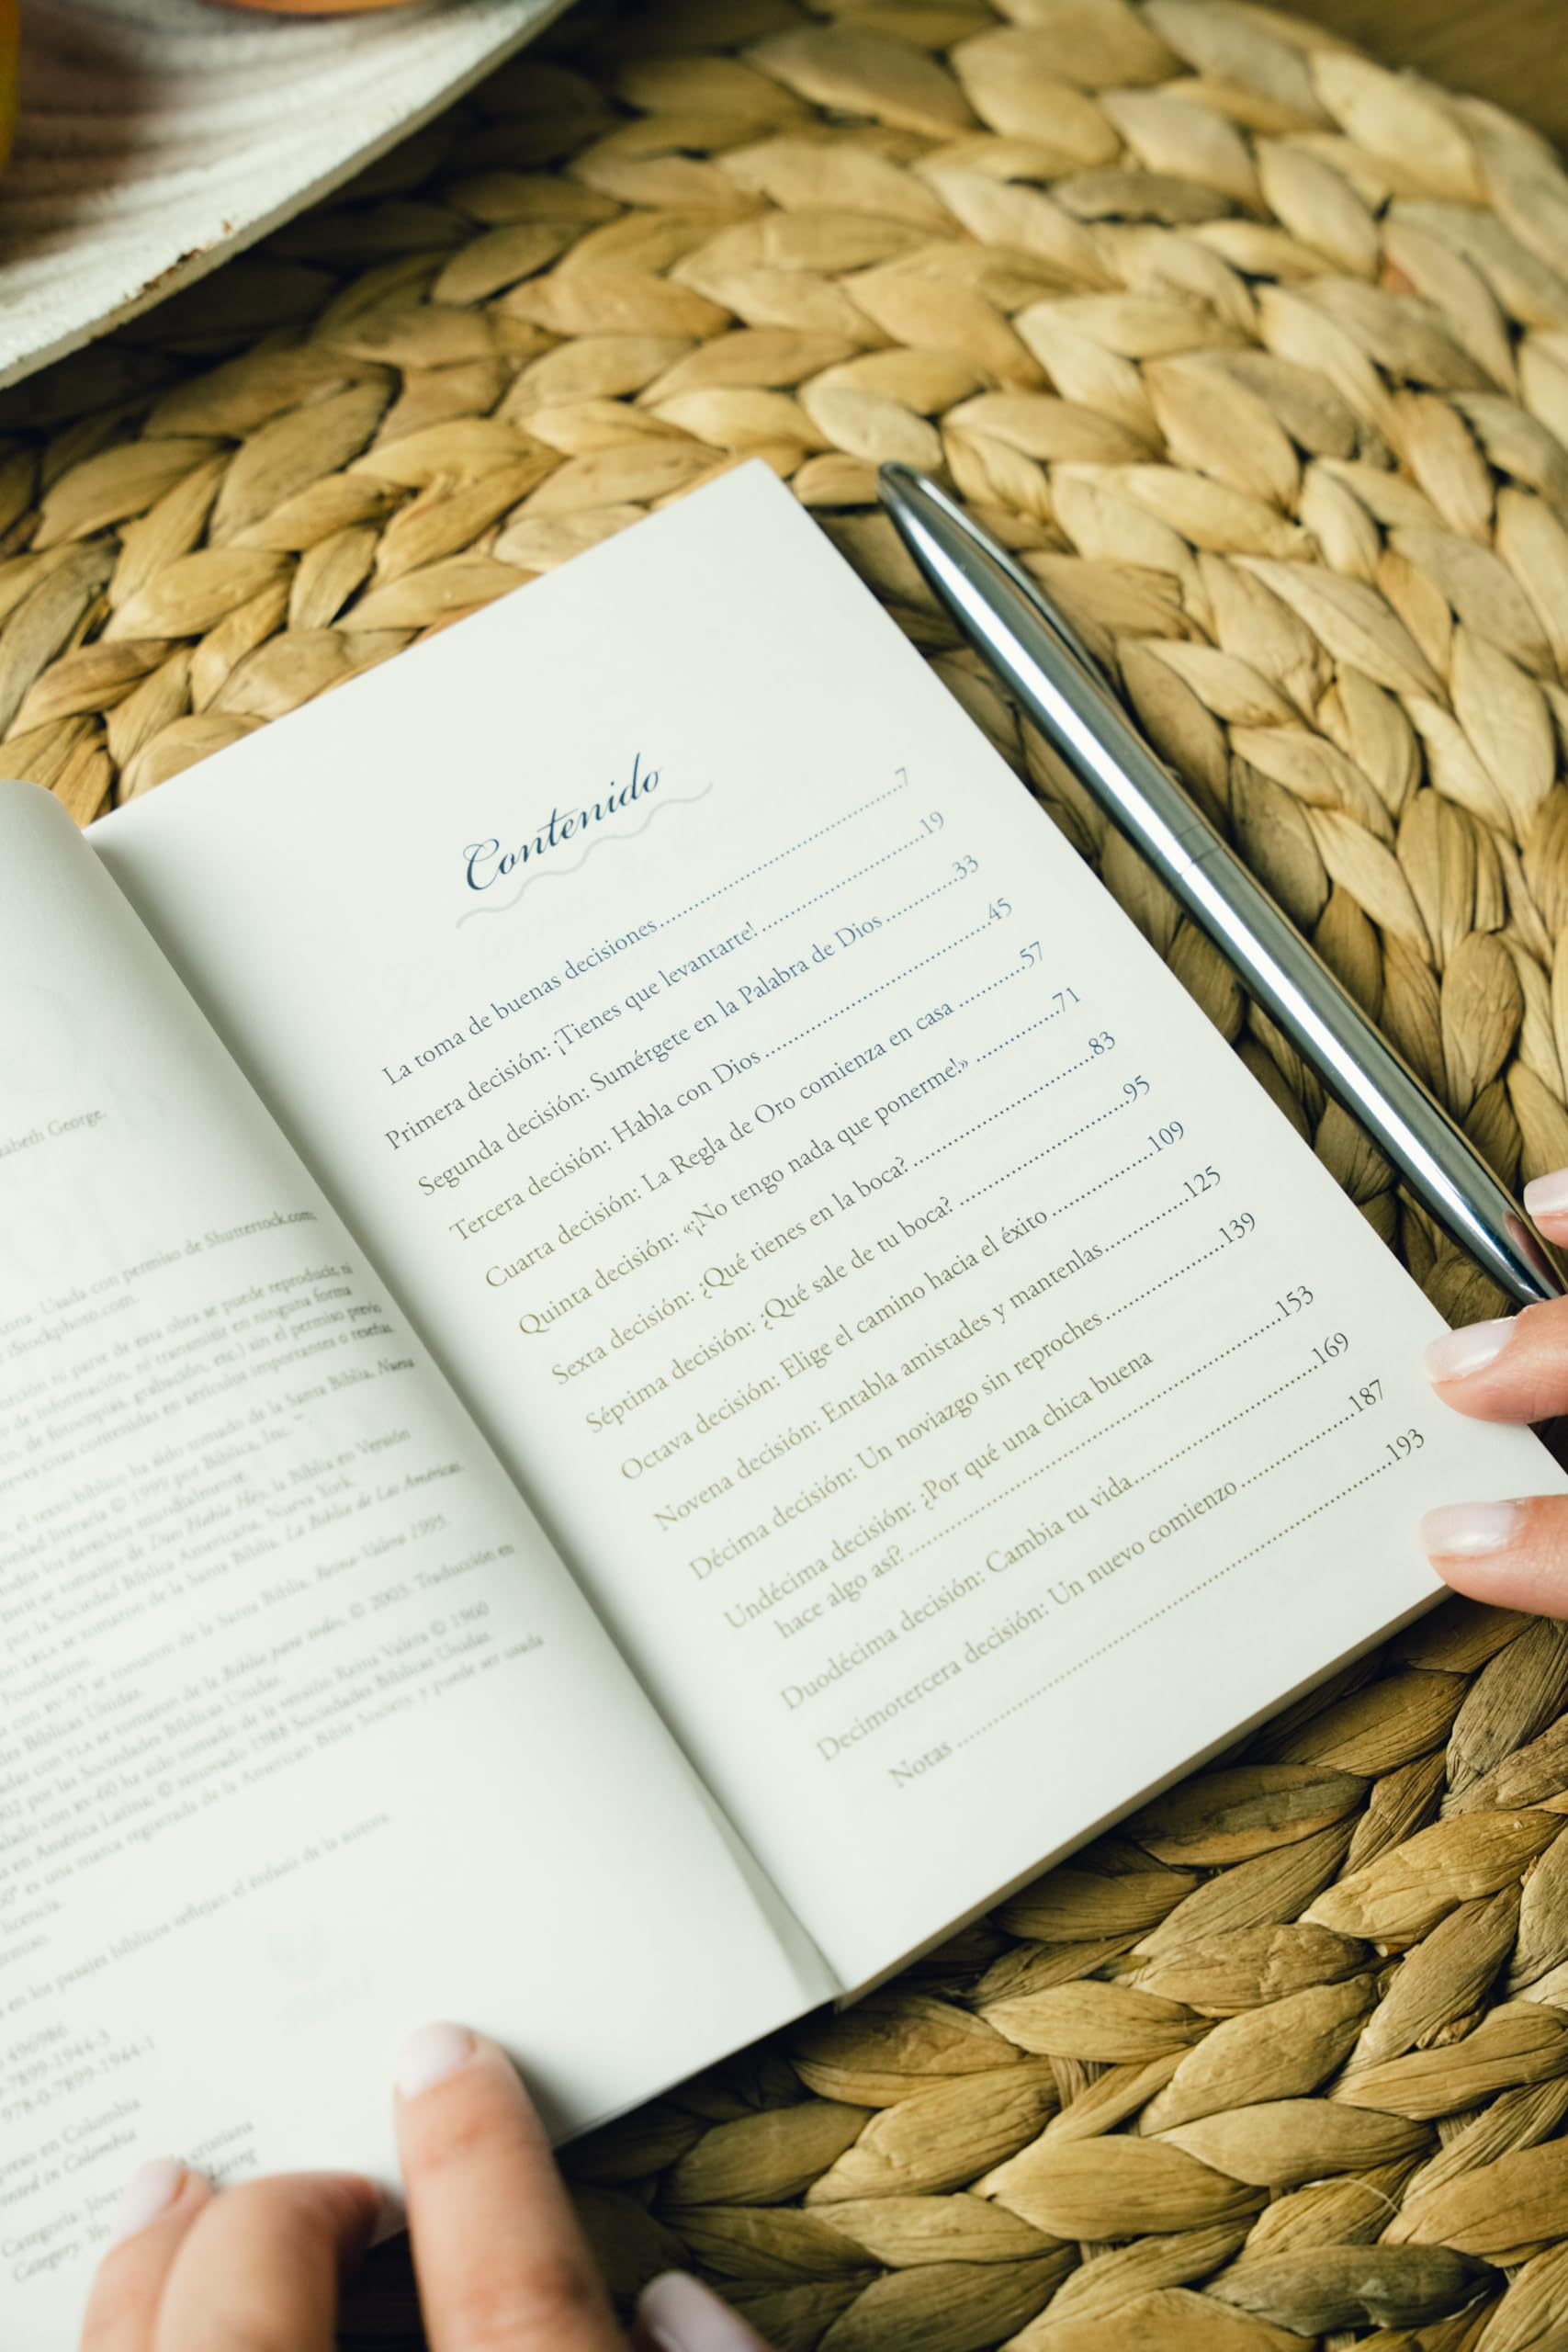 George.
Usada con permiso de Shutterstock.com;
iStockphoto.com.
parte de esta obra se puede reproducir, ni
de información, ni transmitir en ninguna forma
de fotocopias, grabación, etc.) sin el permiso previo
citas contenidas en artículos importantes o reseñas.
el texto bíblico ha sido tomado de la Santa Biblia, Nueva
© 1999 por Bíblica, Inc.
derechos mundialmente.
se tomaron de Dios Habla Hoy, la Biblia en Versión
por la Sociedad Bíblica Americana, Nueva York.
LBLA se tomaron de la Santa Biblia, La Biblia de Las Américas.
Foundation.
con RV-95 se tomaron de la Santa Biblia, Reina-Valera 1995.
Bíblicas Unidas.
con TLA se tomaron de la Biblia para todos, © 2003. Traducción en
por las Sociedades Bíblicas Unidas.
con RV-60 ha sido tomado de la versión Reina Valera © 1960
en América Latina; © renovado 1988 Sociedades Bíblicas Unidas.
es una marca registrada de la American Bible Society, y puede ser usada
licencia.
en los pasajes bíblicos reflejan el énfasis de la autora.
496986
978-0-7899-1944-1
en Colombia
in Colombia
cristiana
Categoría:
Category:
Contenido
La toma de buenas decisiones....................7
Primera decisión: ¡Tienes que levantarte! ....................19
Segunda decisión: Sumérgete en la Palabra de Dios..........33
Tercera decisión: Habla con Dios ....................45
Cuarta decisión: La Regla de Oro comienza en casa ..........57
Quinta decisión: «¡No tengo nada que ponerme!» ..........71
Sexta decisión: ¿Qué tienes en la boca? ....................83
Séptima decisión: ¿Qué sale de tu boca? ....................95
Octava decisión: Elige el camino hacia el éxito ..........109
Novena decisión: Entabla amistades y mantenlas..........125
Décima decisión: Un noviazgo sin reproches..........139
Undécima decisión: ¿Por qué una chica buena
hace algo así?....................153
Duodécima decisión: Cambia tu vida....................169
Decimotercera decisión: Un nuevo comienzo..........187
Notas ....................193